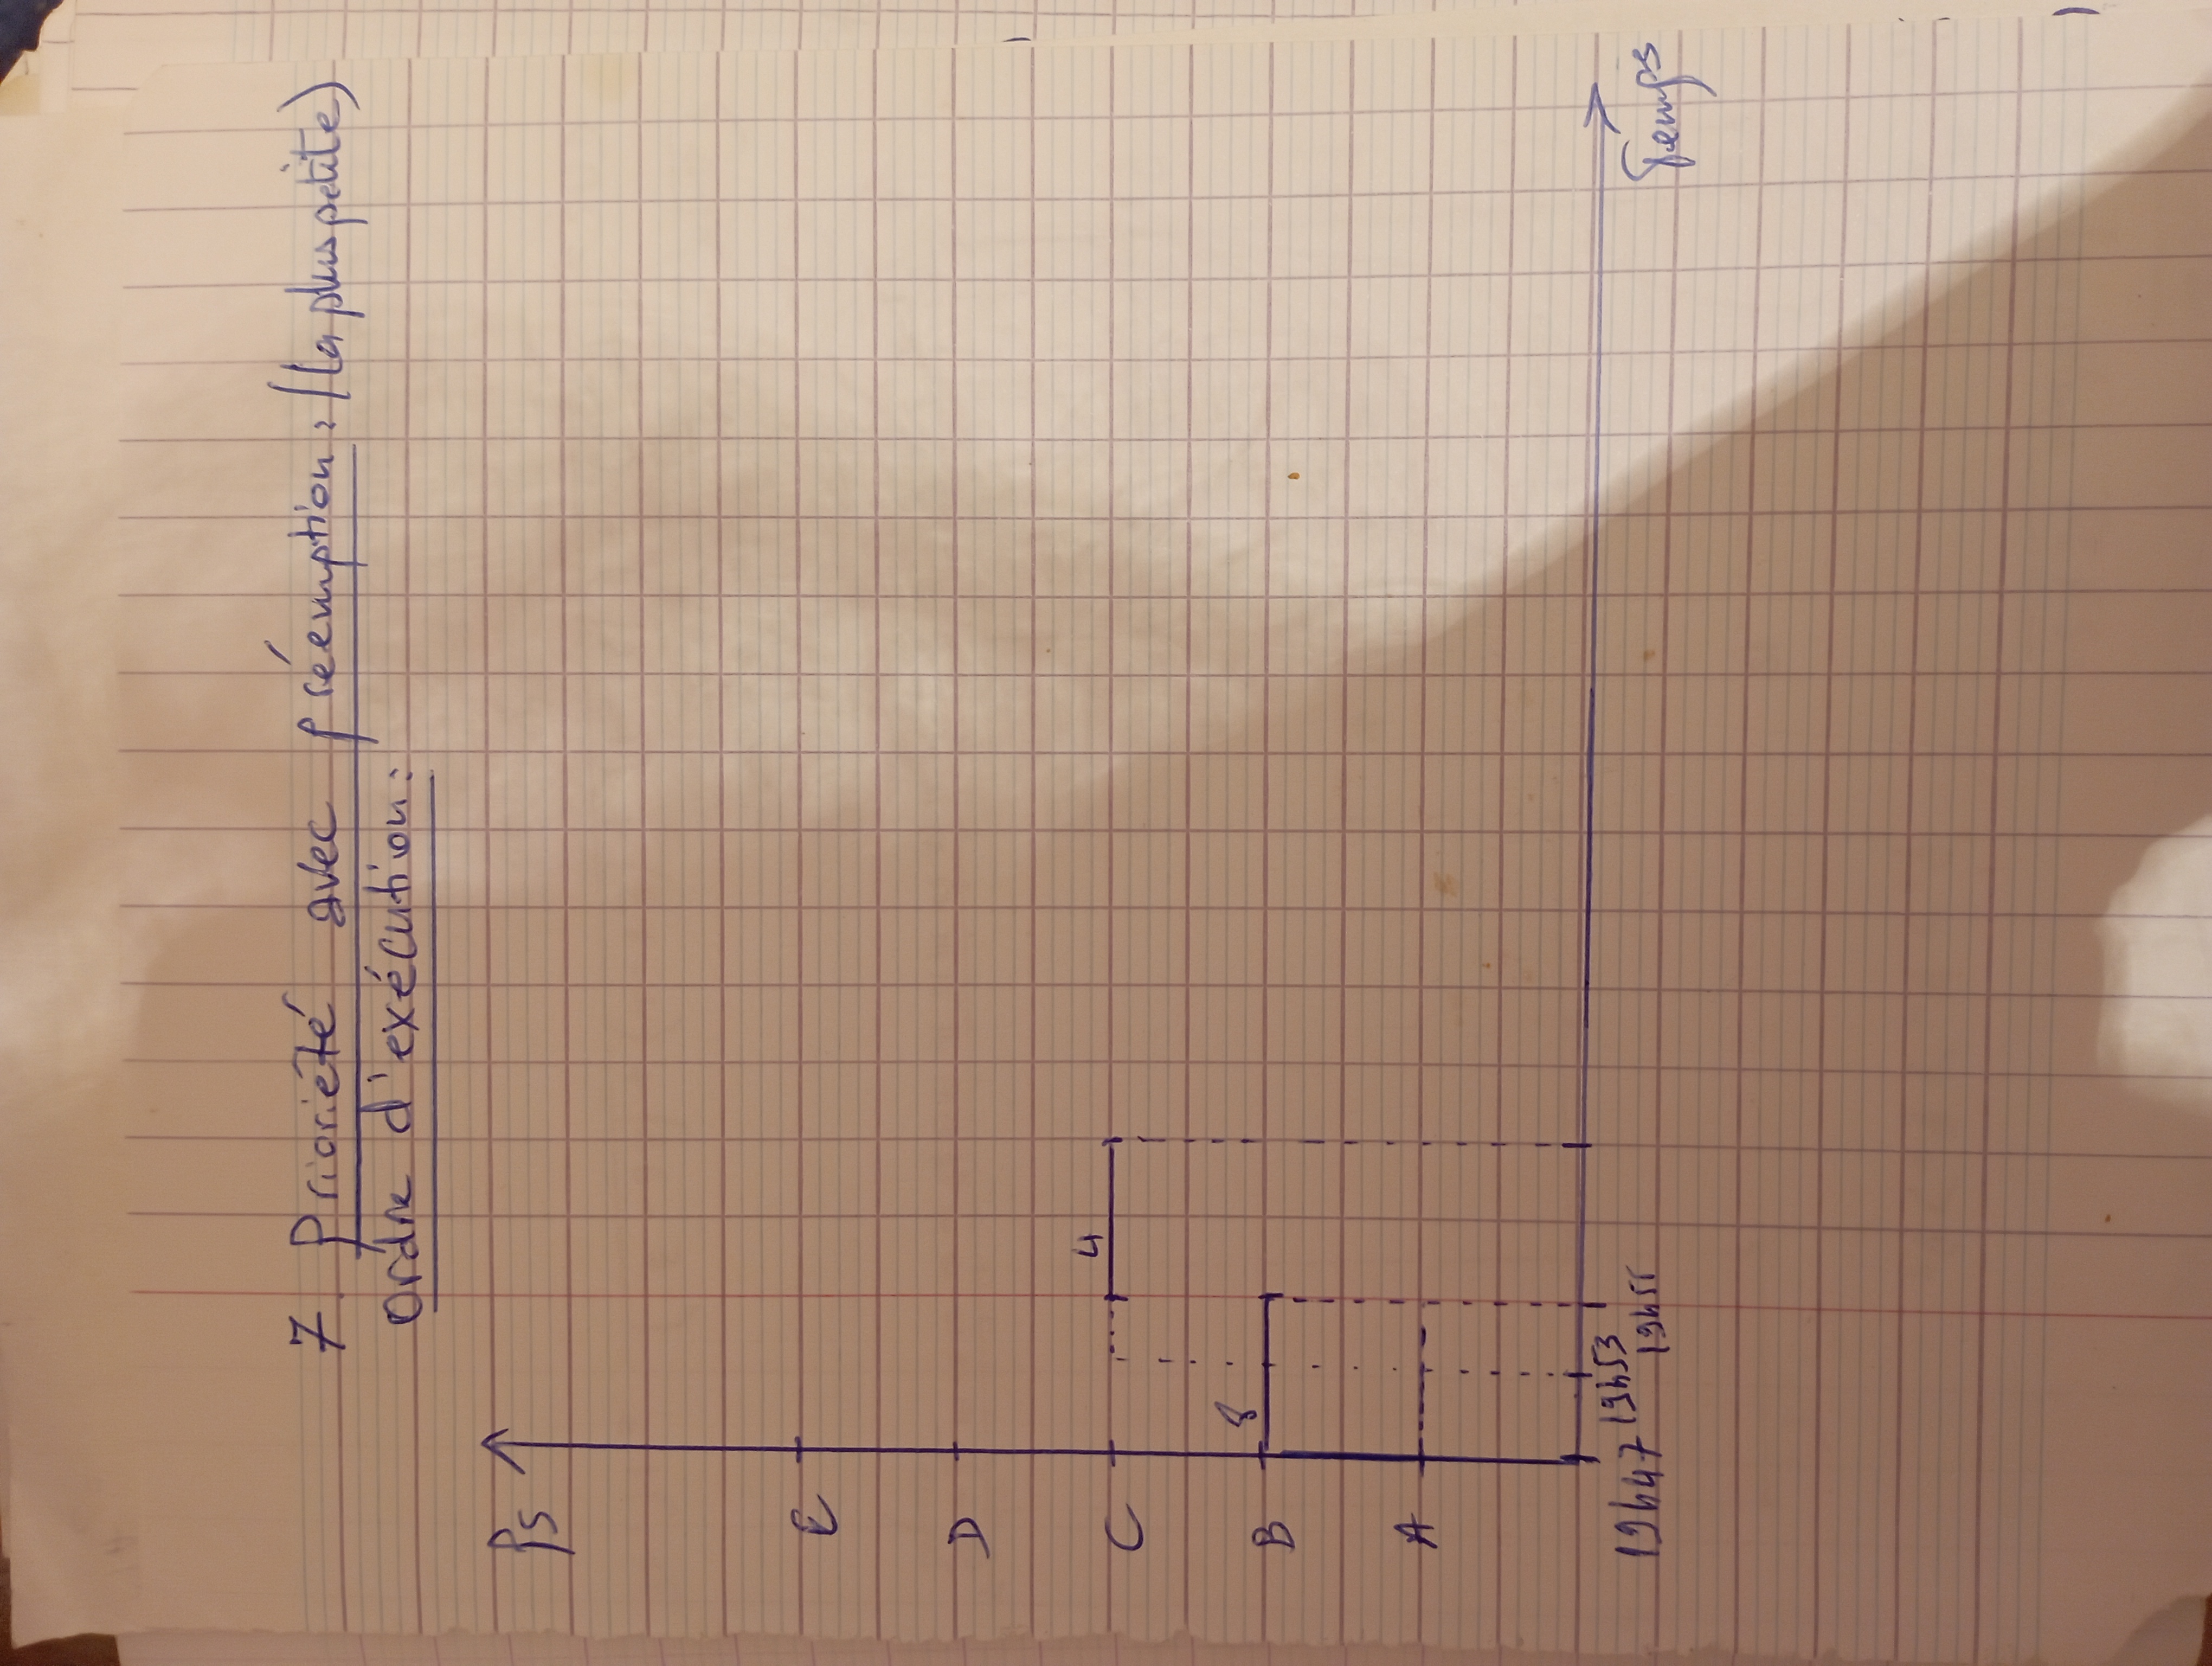 7. Prioriété avec préemption : (la plus petite)
Ordre d'exécution :
Ps
E
D
4
C
8
B
A
19h47 19h53
19h55
Temps